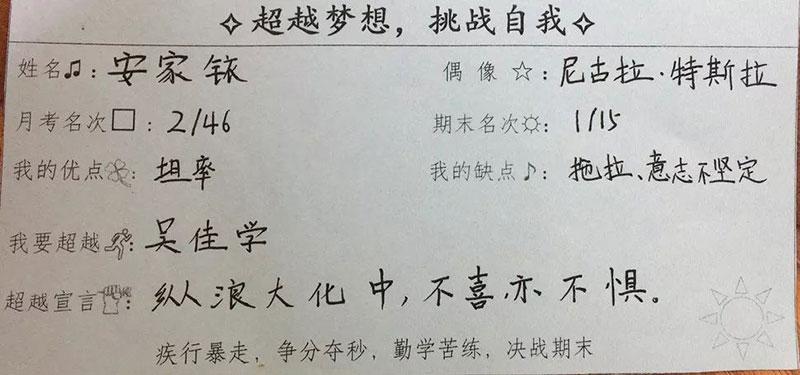 超越梦想，挑战自我
姓名：安家铱 偶像☆：尼古拉·特斯拉
月考名次□：2/46 期末名次☼：1/15
我的优点：坦率 我的缺点♪：拖拉、意志不坚定
我要超越：吴佳学
超越宣言：纵浪大化中，不喜亦不惧。
疾行暴走，争分夺秒，勤学苦练，决战期末